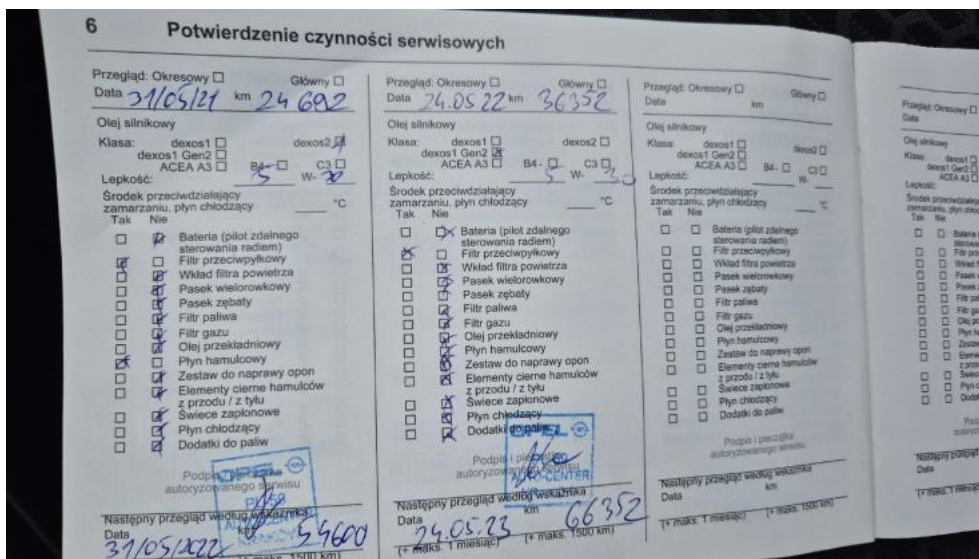 6 Potwierdzenie czynności serwisowych
Przegląd: Okresowy Główny
Data 31/05/21 km 24 692
Olej silnikowy
Klasa: dexos1 dexos2
dexos1 Gen2
ACEA A3 B4- C3
Lepkość: 5 W- 30
Środek przeciwdziałający
zamarzaniu, płyn chłodzący °C
Tak Nie
Bateria (pilot zdalnego
sterowania radiem)
Filtr przeciwpyłkowy
Wkład filtra powietrza
Pasek wielorowkowy
Pasek zębaty
Filtr paliwa
Filtr gazu
Olej przekładniowy
Płyn hamulcowy
Zestaw do naprawy opon
Elementy cierne hamulców
z przodu / z tyłu
Świece zapłonowe
Płyn chłodzący
Dodatki do paliw
Podpis
autoryzowanego serwisu
Następny przegląd według wskaźnika
Data km
31/05/2022 54600
(+ maks. 1500 km)
Przegląd: Okresowy Główny
Data 24.05 22 km 36352
Olej silnikowy
Klasa: dexos1 dexos2
dexos1 Gen2
ACEA A3 B4- C3
Lepkość: 5 W- 30
Środek przeciwdziałający
zamarzaniu, płyn chłodzący °C
Tak Nie
Bateria (pilot zdalnego
sterowania radiem)
Filtr przeciwpyłkowy
Wkład filtra powietrza
Pasek wielorowkowy
Pasek zębaty
Filtr paliwa
Filtr gazu
Olej przekładniowy
Płyn hamulcowy
Zestaw do naprawy opon
Elementy cierne hamulców
z przodu / z tyłu
Świece zapłonowe
Płyn chłodzący
Dodatki do paliw
OPEL
Podpis i
autoryzowanego serwisu
AUTO-CENTER
Następny przegląd według wskaźnika
Data 24.05.23 km 66352
(+ maks. 1 miesiąc) (+ maks. 1500 km)
Przegląd: Okresowy Główny
Data km
Olej silnikowy
Klasa: dexos1 dexos2
dexos1 Gen2
ACEA A3 B4- C3
Lepkość: W-
Środek przeciwdziałający
zamarzaniu, płyn chłodzący °C
Tak Nie
Bateria (pilot zdalnego
sterowania radiem)
Filtr przeciwpyłkowy
Wkład filtra powietrza
Pasek wielorowkowy
Pasek zębaty
Filtr paliwa
Filtr gazu
Olej przekładniowy
Płyn hamulcowy
Zestaw do naprawy opon
Elementy cierne hamulców
z przodu / z tyłu
Świece zapłonowe
Płyn chłodzący
Dodatki do paliw
Podpis i pieczątka
autoryzowanego serwisu
Następny przegląd według wskaźnika
Data km
(+ maks. 1 miesiąc) (+ maks. 1500 km)
Przegląd: Okresowy
Data
Olej silnikowy
Klasa: dexos1
dexos1 Gen2
ACEA A3
Lepkość:
Tak Nie